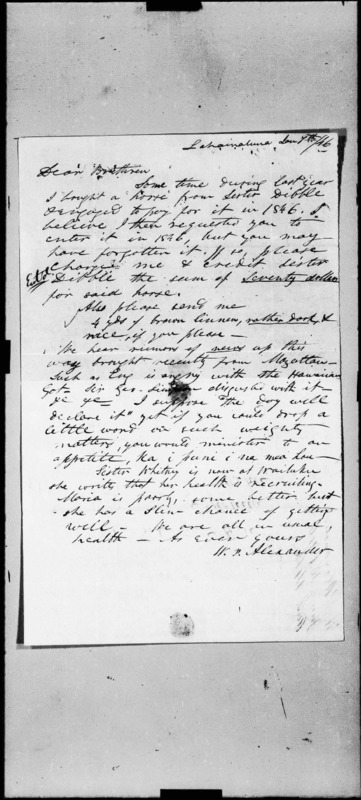 Lahainaluna Jan 9th/46
Dear Brethren
Some time during last year
I bought a horse from Sister Dibble
engaged to pay for it in 1846. I
believe I then requested you to
enter it in 1846, but you may
have forgotten it. If so please
charge me & credit sister
Dibble the sum of Seventy dollars
for said horse.
Also please send me
4 yds of brown linnen, rather dark, &
nice, if you please —
We hear rumors of news up this
way brought recently from Mazatlan
Such as Eng is angry with the Hawaiian
Govt Sir Geo. Simpson disgusted with it
&c &c I suppose "the day will
declare it" yet if you would drop a
little word on such weighty
matters, you would minister to an
appetite, ka i puni i na mea hou —
Sister Whitney is now at Wailuku
she writes that her health is recruiting.
Maria is poorly, some better but
she has a slim chance of getting
well — We are all in usual
health — As ever yours
W. P. Alexander